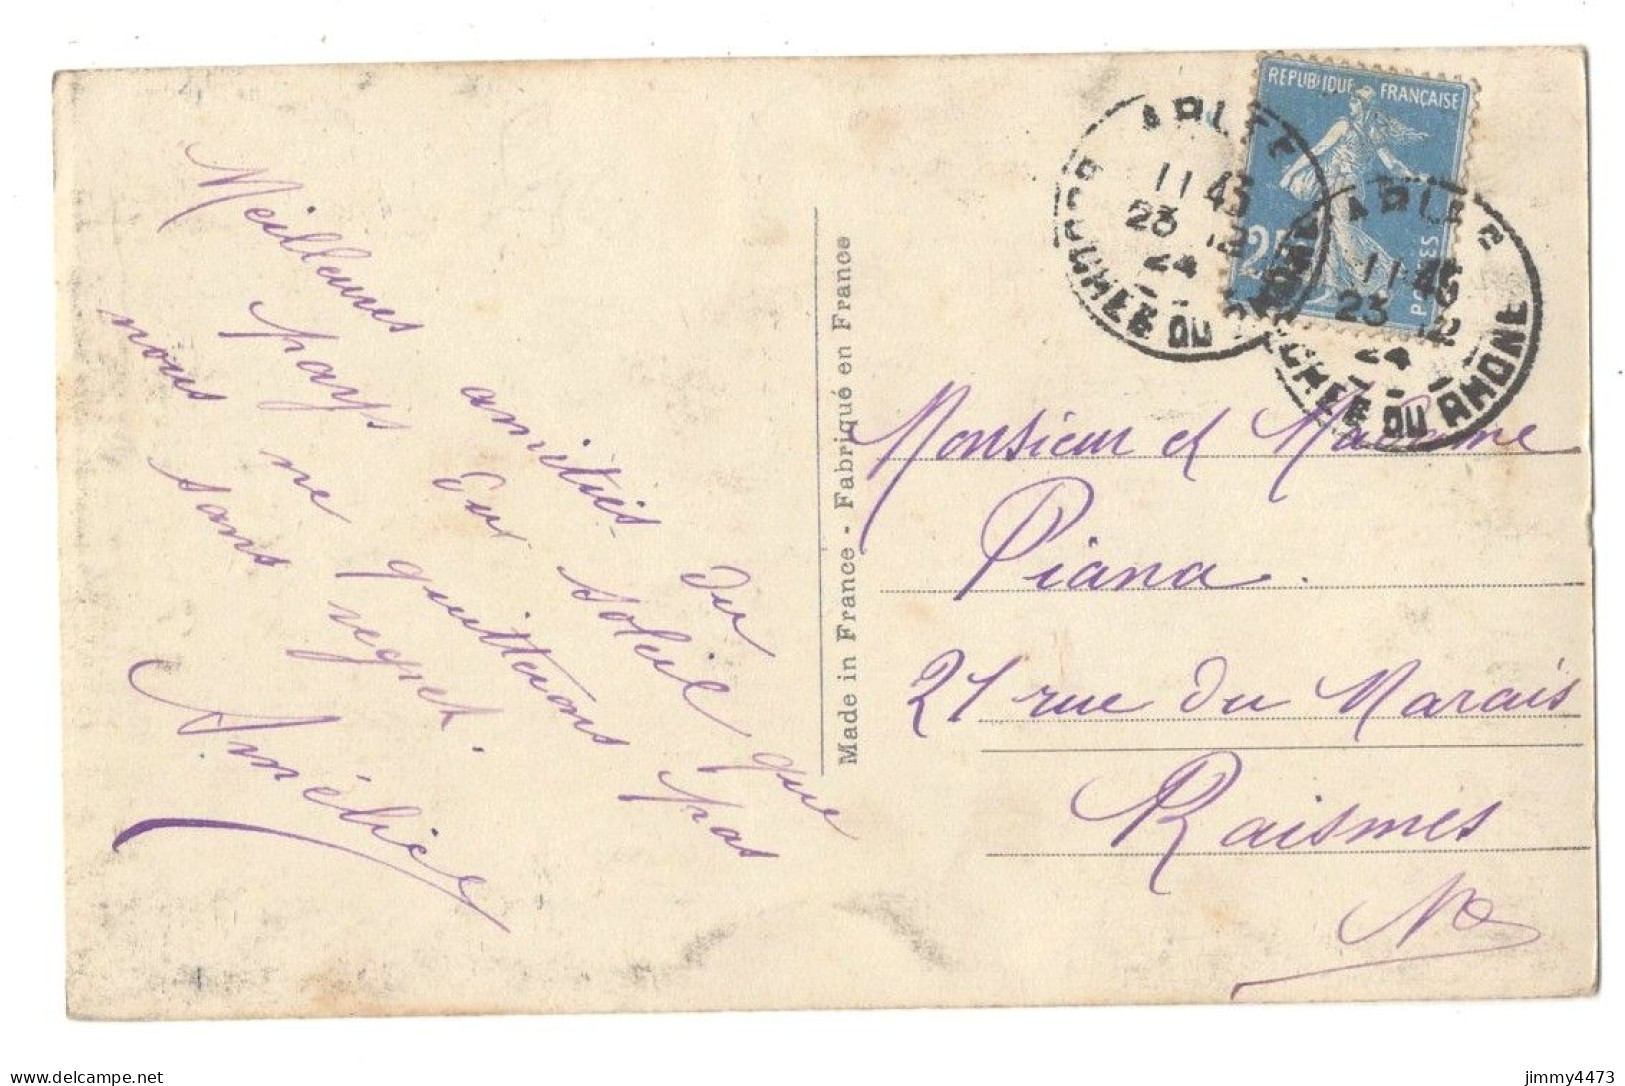 Meilleures amitiés du
pays du soleil que
nous ne quittons pas
sans regret.
Amélie
Made in France - Fabriqué en France
REPUBLIQUE FRANÇAISE
POSTES
25
ARLES
11 45
23 12
24
BOUCHES DU RHONE
ARLES
11 45
23 12
24
BOUCHES DU RHONE
Monsieur et Madame
Piana.
21 rue du Marais
Raismes
jimmy4473